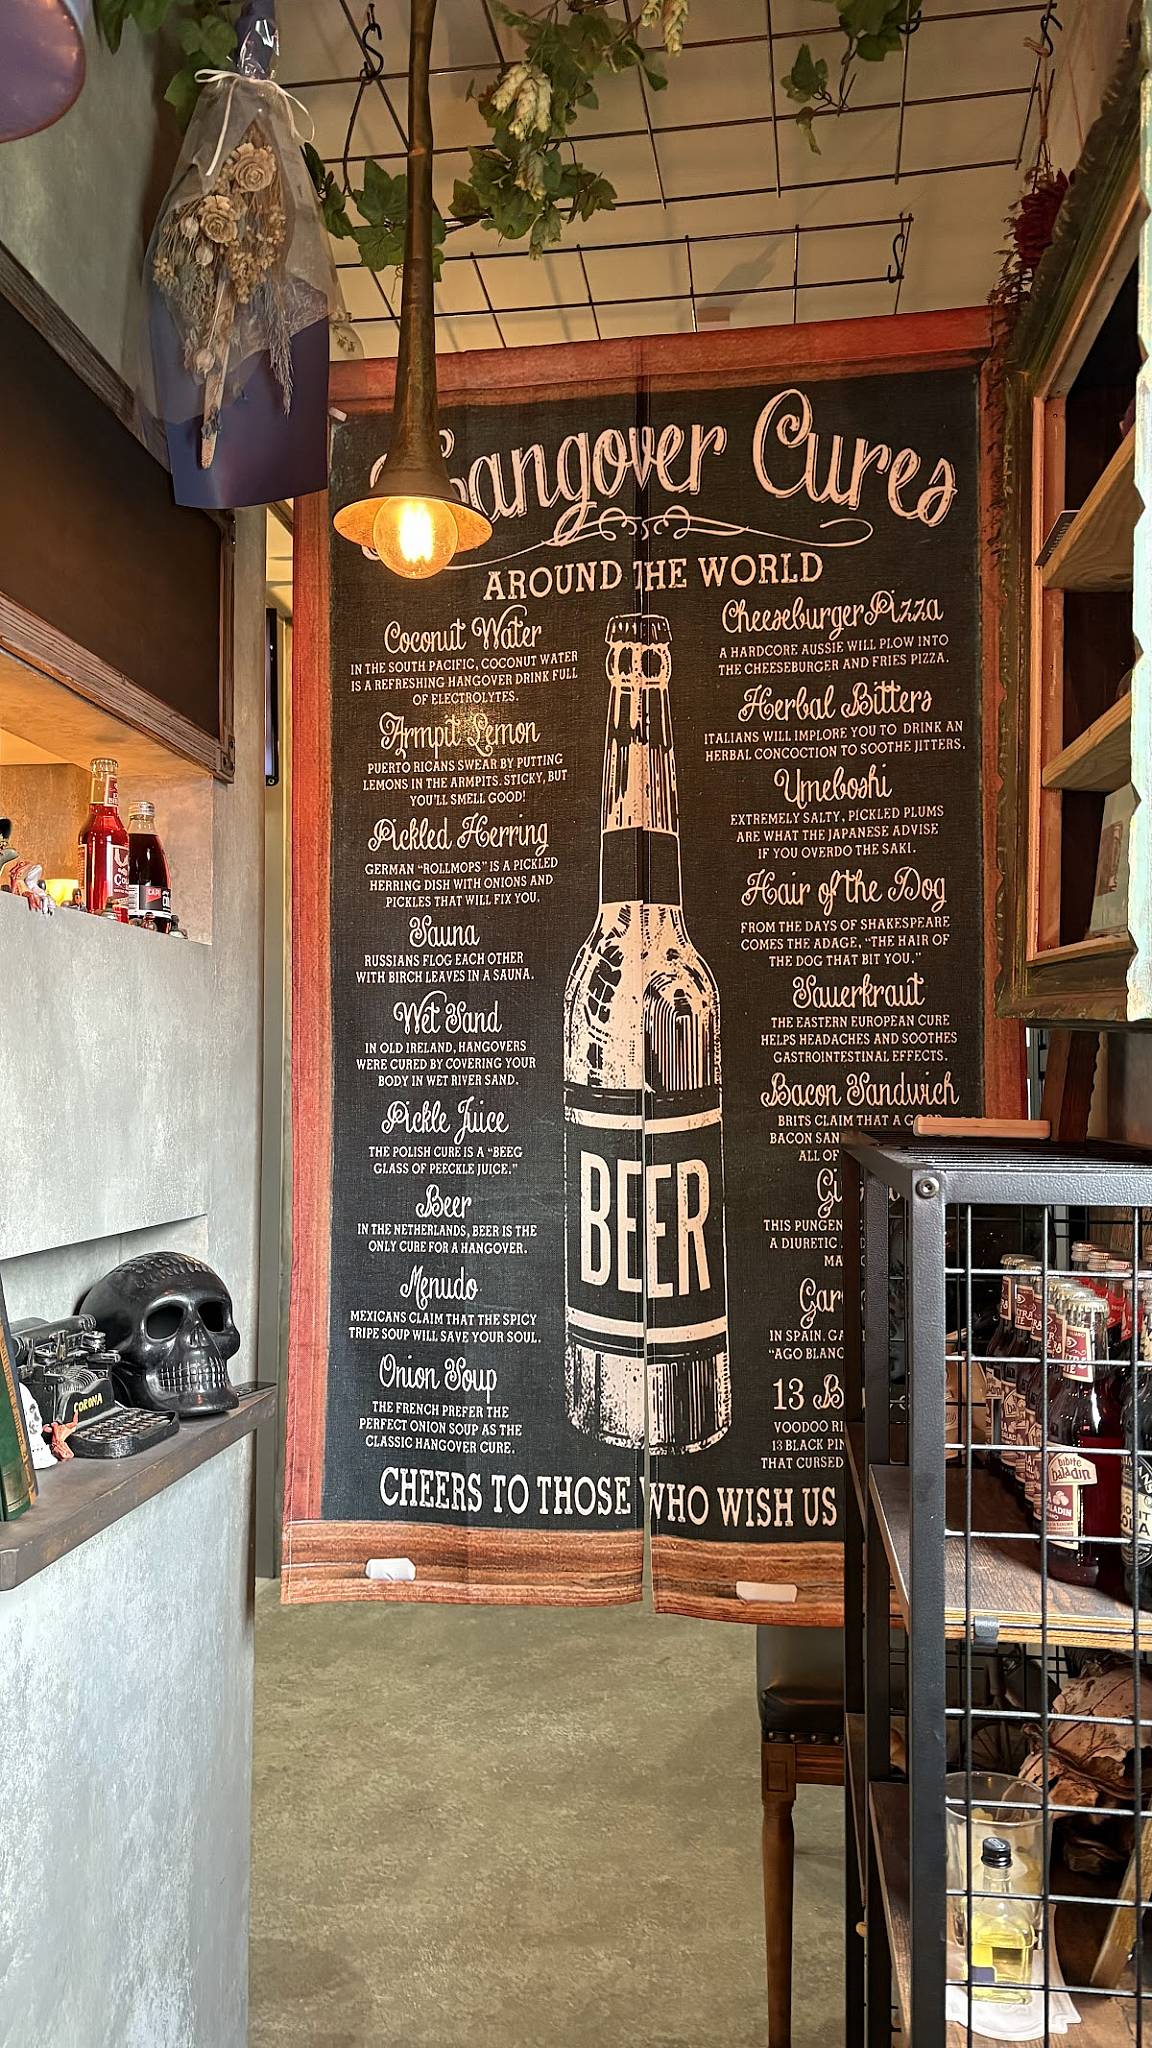 Hangover Cures
AROUND THE WORLD
Coconut Water
IN THE SOUTH PACIFIC, COCONUT WATER
IS A REFRESHING HANGOVER DRINK FULL
OF ELECTROLYTES.
Armpit Lemon
PUERTO RICANS SWEAR BY PUTTING
LEMONS IN THE ARMPITS. STICKY, BUT
YOU'LL SMELL GOOD!
Pickled Herring
GERMAN "ROLLMOPS" IS A PICKLED
HERRING DISH WITH ONIONS AND
PICKLES THAT WILL FIX YOU.
Sauna
RUSSIANS FLOG EACH OTHER
WITH BIRCH LEAVES IN A SAUNA.
Wet Sand
IN OLD IRELAND, HANGOVERS
WERE CURED BY COVERING YOUR
BODY IN WET RIVER SAND.
Pickle Juice
THE POLISH CURE IS A "BEEG
GLASS OF PEECKLE JUICE."
Beer
IN THE NETHERLANDS, BEER IS THE
ONLY CURE FOR A HANGOVER.
Menudo
MEXICANS CLAIM THAT THE SPICY
TRIPE SOUP WILL SAVE YOUR SOUL.
Onion Soup
THE FRENCH PREFER THE
PERFECT ONION SOUP AS THE
CLASSIC HANGOVER CURE.
BEER
Cheeseburger Pizza
A HARDCORE AUSSIE WILL PLOW INTO
THE CHEESEBURGER AND FRIES PIZZA.
Herbal Bitters
ITALIANS WILL IMPLORE YOU TO DRINK AN
HERBAL CONCOCTION TO SOOTHE JITTERS.
Umeboshi
EXTREMELY SALTY, PICKLED PLUMS
ARE WHAT THE JAPANESE ADVISE
IF YOU OVERDO THE SAKI.
Hair of the Dog
FROM THE DAYS OF SHAKESPEARE
COMES THE ADAGE, "THE HAIR OF
THE DOG THAT BIT YOU."
Sauerkraut
THE EASTERN EUROPEAN CURE
HELPS HEADACHES AND SOOTHES
GASTROINTESTINAL EFFECTS.
Bacon Sandwich
BRITS CLAIM THAT A GOOD
BACON SAN
ALL OF
Gi
THIS PUNGEN
A DIURETIC
MA
Gar
IN SPAIN, GA
"AGO BLANC
13 B
VOODOO RI
13 BLACK PIN
THAT CURSED
CHEERS TO THOSE WHO WISH US
CORONA
bibite
baladin